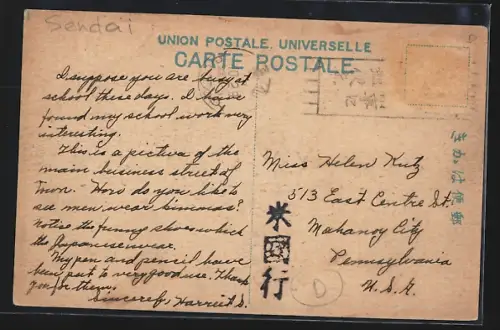 Sendai
UNION POSTALE UNIVERSELLE
CARTE POSTALE
I suppose you are busy at
school these days. I have
found my school work very
interesting.
This is a picture of the
main business street of
How do you like to
see men wear kimonas?
Notice the funny shoes which
the Japanese wear.
My pen and pencil have
been put to very good use. Thank
you for them.
Sincerely, Harriet S.
Miss Helen Kutz
513 East Centre St.
Mahanoy City
Pennsylvania
U.S.A.
米國行
D
きかは便郵